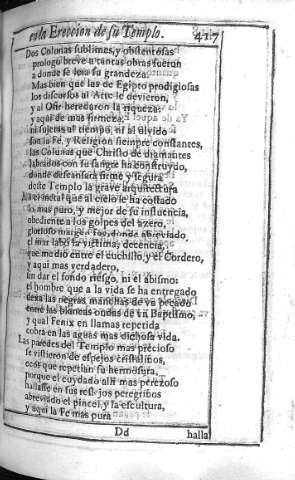 en la Ereccion de su Templo. 417
Dos Colunas sublimes, y obstentosas
prologo breve a tantas obras fueron
a donde se su grandeza.
Mas bien que las de Egipto prodigiosas
los discursos al Arte le devieron,
y al Ofir heredaron la riqueza:
y aqui de mas firmeza:
ni sujetas al tiempo, ni al olvido
son la Fè, y Religiõn siempre constantes,
las Colunas que Christo de diamantes
labrados con su sangre ha construydo,
donde descansara firme y segura
deste Templo la grave arquitectura
el metal que al cielo le ha costado
lo mas puro, y mejor de su influencia,
obediente a los golpes del azero,
glorioso margen fue, donde abreviado
el mar labò la victima, decencia,
que medio entre el cuchillo, y el Cordero,
y aqui mas verdadero,
sin dar el fondo riesgo, ni el abismo:
el hombre que a la vida se ha entregado
dexa las negras manchas de su pecado
entre las blancas ondas de un Baptismo,
y qual Fenix en llamas repetida
cobra en las aguas mas dichosa vida.
Las paredes del Templo mas precioso
se vistieron de espejos cristalinos,
ecos que repetian su hermosura,
porque el cuydado alli mas perezoso
hallasse en sus reflejos peregrinos
abreviado el pincel, y la escultura,
y aqui la Fe mas pura
Dd halla